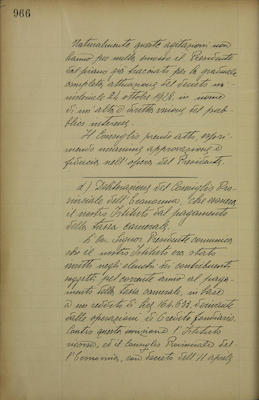 966
Naturalmente queste agitazioni non
hanno per nulla smosso il Presidente
dal piano già tracciato per la graduale
completa attuazione del decreto mi-
nisteriale 24 ottobre 1928, in nome
di un alto e ben inteso pub-
blico interesse.
Il Consiglio prende atto, espri-
mendo unanime approvazione e
fiducia nell'opera del Presidente.
d) Deliberazione del Consiglio Pro-
vinciale dell'Economia, che esonera
il nostro Istituto dal pagamento
della tassa camerale.
Il Signor Presidente comunica
che il nostro Istituto era stato
messo negli elenchi dei contribuenti
soggetti pel corrente anno al paga-
mento della tassa camerale, in base
a un reddito di Lire 164.633, derivante
dalle operazioni di Credito fondiario.
Contro questa iscrizione l'Istituto
ricorse, ed il Consiglio Provinciale del-
l'Economia, con decreto dell'11 aprile